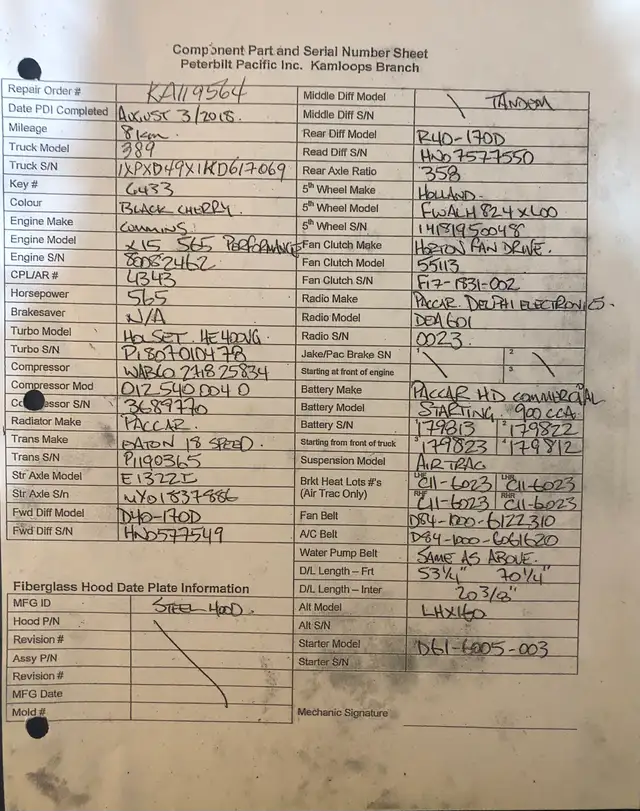 Component Part and Serial Number Sheet
Peterbilt Pacific Inc. Kamloops Branch
Repair Order # KA119564
Date PDI Completed AUGUST 3/2018.
Mileage 8km.
Truck Model 389
Truck S/N 1XPXD49X1KD617069
Key # 6433
Colour BLACK CHERRY.
Engine Make CUMMINS
Engine Model X15 565 PERFORMANCE
Engine S/N 80082462
CPL/AR # 4343
Horsepower 565
Brakesaver N/A
Turbo Model HOLSET. HE400VG.
Turbo S/N P180701047B
Compressor WABCO 21825834
Compressor Mod 012 540 004 0
Co ressor S/N 3689770
Radiator Make PACCAR.
Trans Make EATON 18 SPEED.
Trans S/N P1190365
Str Axle Model E1322I
Str Axle S/n NY01837886
Fwd Diff Model D40-170D
Fwd Diff S/N HN0577549
Fiberglass Hood Date Plate Information
MFG ID STEEL HOOD.
Hood P/N
Revision #
Assy P/N
Revision #
MFG Date
Mold #
Middle Diff Model TANDEM
Middle Diff S/N
Rear Diff Model R40-170D
Read Diff S/N HN07577550
Rear Axle Ratio 358
5th Wheel Make HOLLAND.
5th Wheel Model FWALH 824 X400
5th Wheel S/N 14181950048
Fan Clutch Make HORTON FAN DRIVE.
Fan Clutch Model 55113
Fan Clutch S/N F17-1831-002
Radio Make PACCAR. DELPHI ELECTRONICS.
Radio Model DEA601
Radio S/N 0023
Jake/Pac Brake SN 1 2
Starting at front of engine 3
Battery Make PACCAR HD COMMERCIAL
Battery Model STARTING. 900 CCA.
Battery S/N 179813 2 179822
Starting from front of truck 3 179823 4 179812
Suspension Model AIR TRAC
Brkt Heat Lots #'s LHF C11-6023 LHR C11-6023
(Air Trac Only) RHF C11-6023 RHR C11-6023
Fan Belt D84-1000-6122310
A/C Belt D84-1000-6061620
Water Pump Belt SAME AS ABOVE.
D/L Length – Frt 53 1/4" 70 1/4"
D/L Length – Inter 20 3/8"
Alt Model LHX160
Alt S/N
Starter Model D61-6005-003
Starter S/N
Mechanic Signature